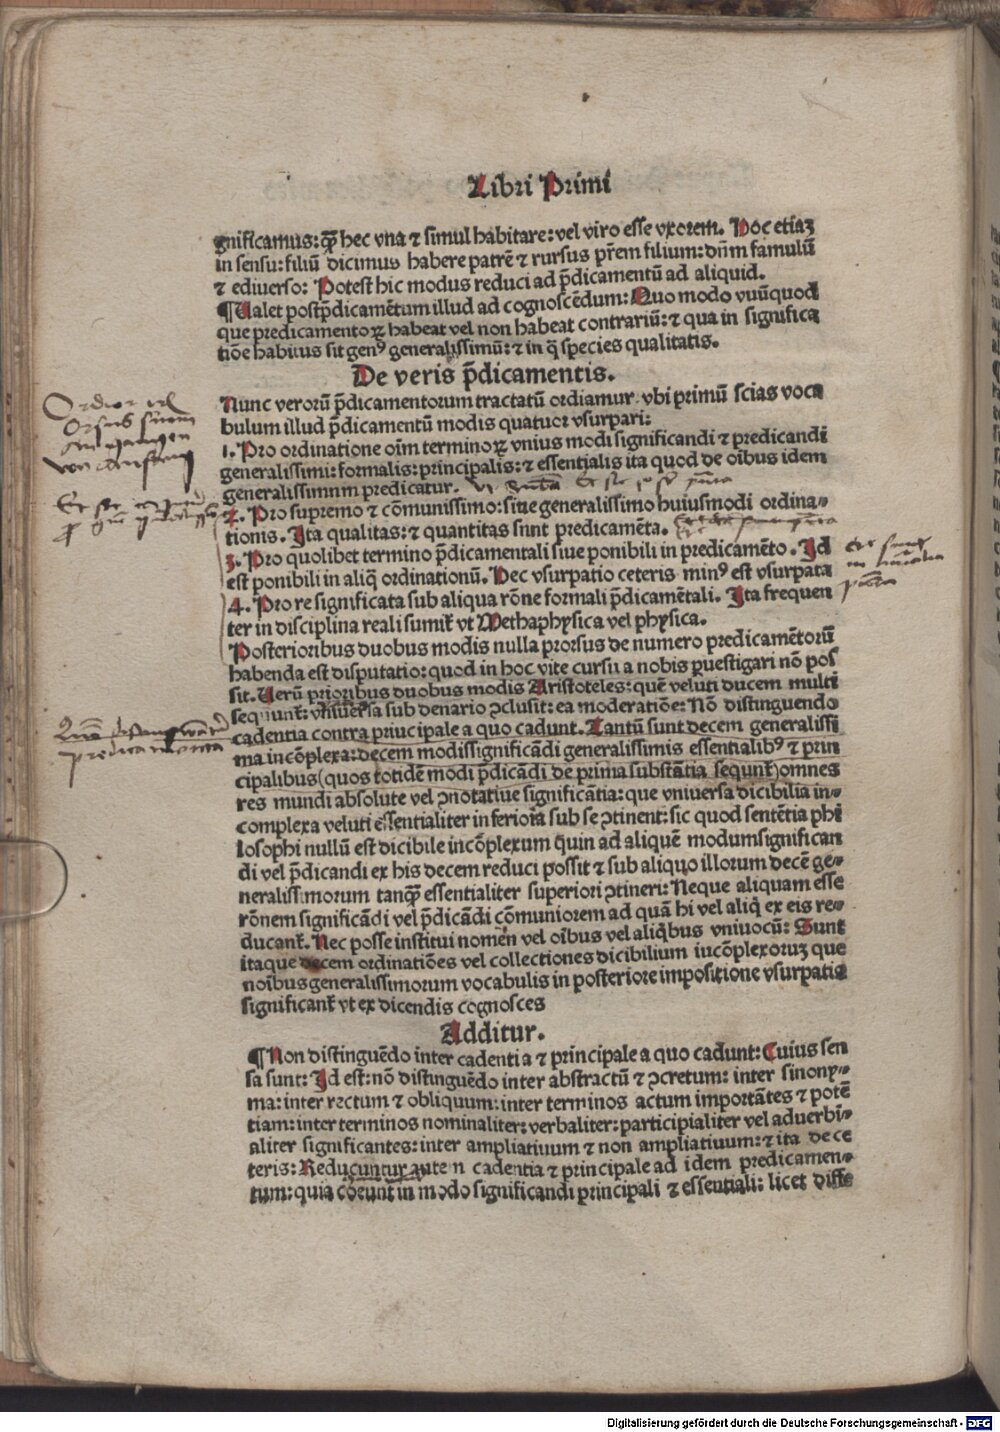 Libri Primi
gnificamus: qp̄ hec vna ⁊ simul habitare: vel viro esse vxorem. Hoc etiaꝫ
in sensu: filiū dicimus habere patrē ⁊ rursus pr̄em filium: dn̄m famulū
⁊ ediuerso: Potest hic modus reduci ad p̄dicamentū ad aliquid.
¶Ualet postp̄dicamētum illud ad cognoscēdum: Quo modo vnūquod
que predicamentoꝝ habeat vel non habeat contrariū: ⁊ qua in significa
tiōe habitus sit genꝰ generalissimū: ⁊ in q̄ species qualitatis.
De veris p̄dicamentis.
Nunc verorū p̄dicamentorum tractatū ordiamur vbi primū scias voca
bulum illud p̄dicamentū modis quatuor vsurpari:
1. Pro ordinatione oīm terminoꝝ vnius modi significandi ⁊ predicandi
generalissimi: formalis: principalis: ⁊ essentialis ita quod de oībus idem
generalissimum predicatur.
2. Pro supremo ⁊ cōmunissimo: siue generalissimo huiusmodi ordina-
tionis. Ita qualitas: ⁊ quantitas sunt predicamēta.
3. Pro quolibet termino p̄dicamentali siue ponibili in predicamēto. Id
est ponibili in aliq̄ ordinationū. Hec vsurpatio ceteris minꝰ est vsurpata
4. Pro re significata sub aliqua rōne formali p̄dicamētali. Ita frequen
ter in disciplina reali sumit̄ vt Methaphysica vel physica.
Posterioribus duobus modis nulla prorsus de numero predicamētorū
habenda est disputatio: quod in hoc vite cursu a nobis ꝑuestigari nō pos
sit. Uerū prioribus duobus modis Aristoteles: quē veluti ducem multi
sequunt̄: vniuersa sub denario ↄclusit: ea moderatiōe: Nō distinguendo
cadentia contra principale a quo cadunt. Tantū sunt decem generalissi
ma incōplexa: decem modissignificādi generalissimis essentialibꝰ ⁊ prin
cipalibus (quos totidē modi p̄dicādi de prima substātia sequnt̄) omnes
res mundi absolute vel ↄnotatiue significātia: que vniuersa dicibilia in-
complexa veluti essentialiter inferiora sub se ↄtinent: sic quod sentētia phi
losophi nullū est dicibile incōplexum quin ad aliquē modumsignifican
di vel p̄dicandi ex his decem reduci possit ⁊ sub aliquo illorum decē ge-
neralissimorum tanqp̄ essentialiter superiori ↄtineri: Neque aliquam esse
rōnem significādi vel p̄dicādi cōmuniorem ad quā hi vel aliq̄ ex eis re-
ducant̄. Nec posse institui nomen vel oībus vel aliq̄bus vniuocū: Sunt
itaque decem ordinatiōes vel collectiones dicibilium incōplexoruꝫ que
noībus generalissimorum vocabulis in posteriore impositione vsurpatis
significant̄ vt ex dicendis cognosces
Additur.
¶Non distinguēdo inter cadentia ⁊ principale a quo cadunt: Cuius sen
sa sunt: Id est: nō distinguēdo inter abstractū ⁊ ↄcretum: inter sinony-
ma: inter rectum ⁊ obliquum: inter terminos actum importātes ⁊ potē
tiam: inter terminos nominaliter: verbaliter: participialiter vel aduerbi-
aliter significantes: inter ampliatiuum ⁊ non ampliatiuum: ⁊ ita de ce
teris: Reducuntur autem cadentia ⁊ principale ad idem predicamen-
tum: quia coeunt in modo significandi principali ⁊ essentiali: licet diffe
Digitalisierung gefördert durch die Deutsche Forschungsgemeinschaft - DFG